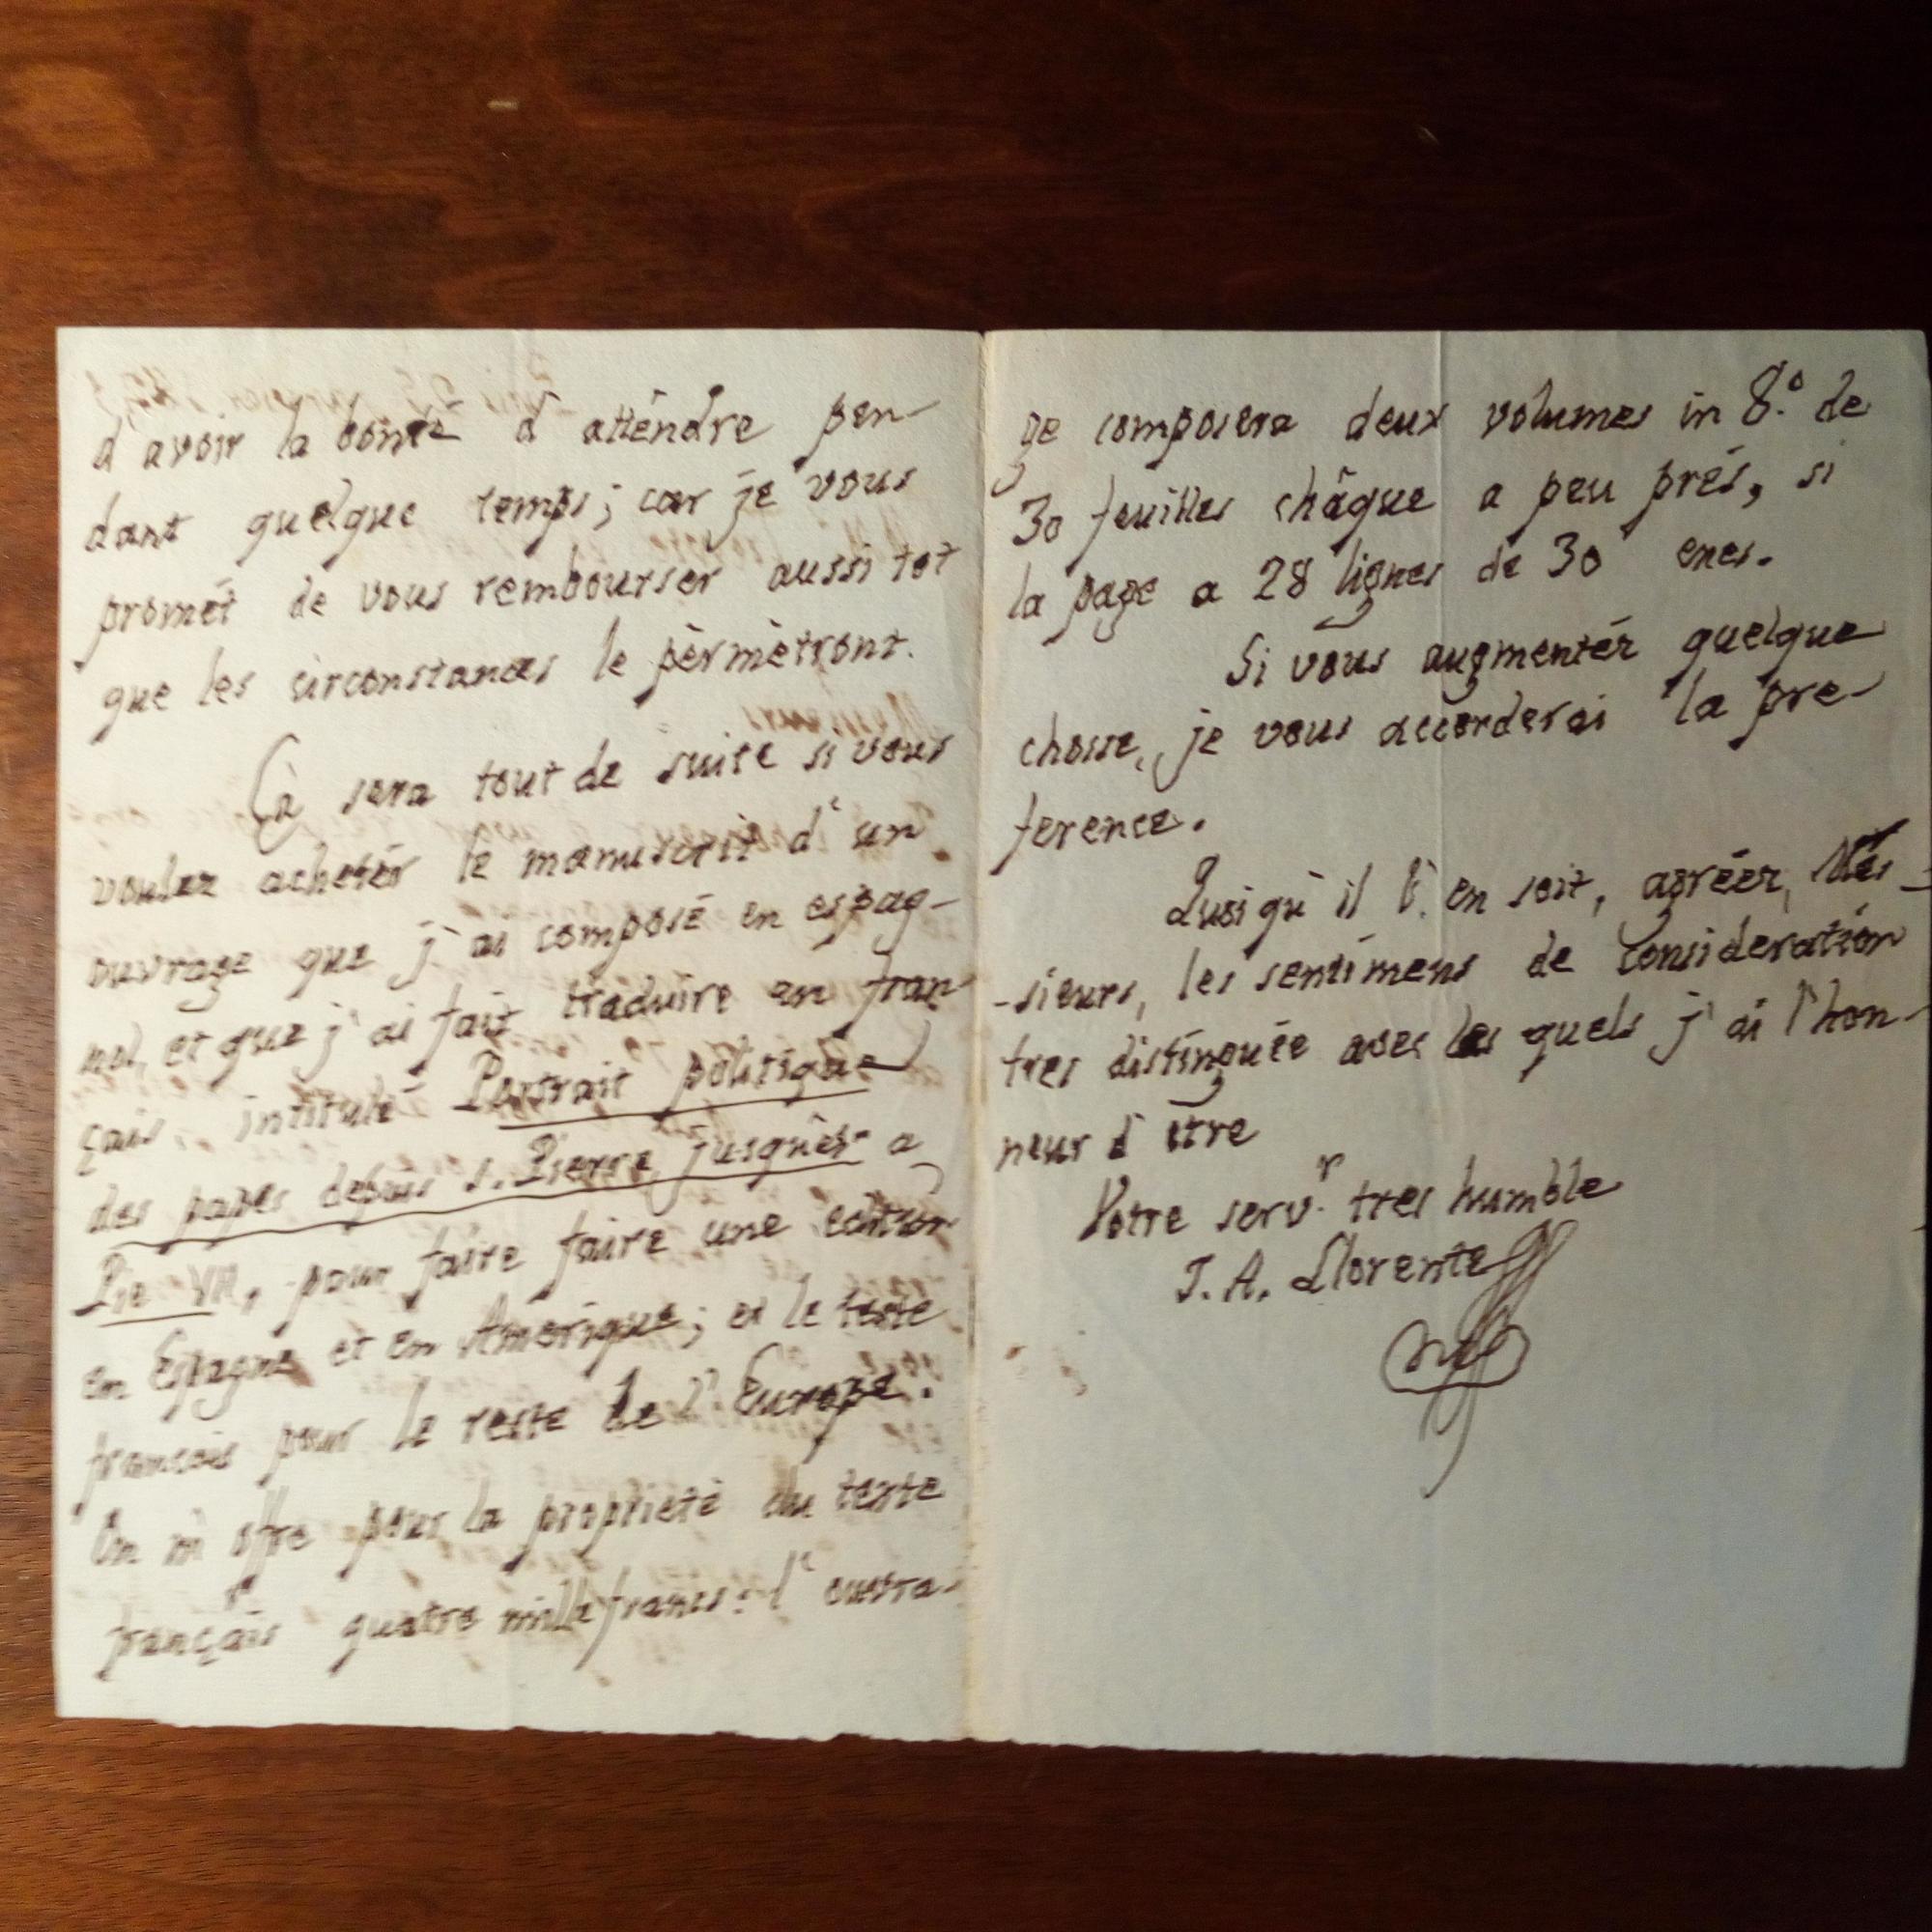 d'avoir la bonté d'atténdre pen-
dant quelque temps; car je vous
promét de vous rembourser aussi tot
que les circonstances le pèrmètront.
Çà sera tout de suite si vous
voulez achetér le manuscrit d'un
ouvrage que j'ai composé en espag-
nol, et que j'ai fait traduire en fran-
çais, intitulé Portrait politique
des papes depuis s. Pierre jusques a
Pie VII, pour faire faire une edition
en Espagne et en Amerique; et le texte
français pour le reste de l'Europe.
On m'offre pour la proprieté du texte
français quatre mille francs: l'ouvra-
ge composera deux volumes in 8.º de
30 feuilles châque a peu prés, si
la page a 28 lignes de 30 enes.
Si vous augmentér quelque
chosse, je vous accorderai la pre-
ference.
Quoi qu'il en soit, agréer, Més-
-sieurs, les sentimens de consideration
tres distinguée avec les quels j'ai l'hon-
neur d'etre
Votre serv.r tres humble
J. A. Llorente